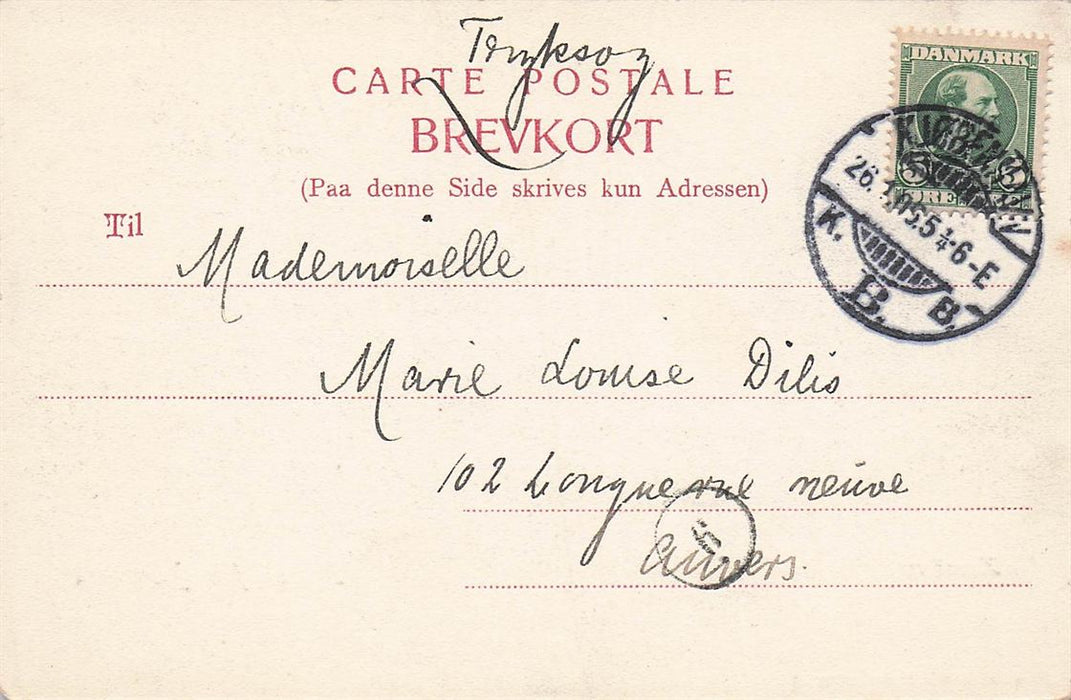 Tryksag
CARTE POSTALE
BREVKORT
(Paa denne Side skrives kun Adressen)
DANMARK
5 5
ØRE
KJØBENHAVN
26. 05. 5¼·6-E
K. B. B.
Til
Mademoiselle
Marie Louise Dilis
102 Longue rue neuve
Anvers.